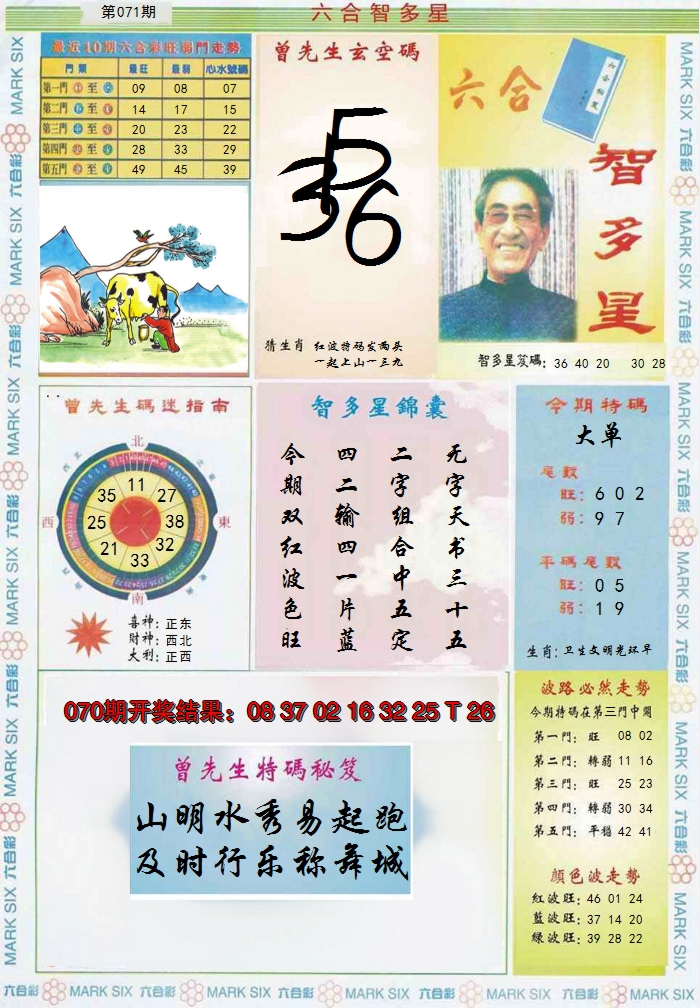 第071期
六合智多星
最近10期六合彩旺弱門走勢
門類 最旺 最弱 心水號碼
第一門 至 09 08 07
第二門 至 14 17 15
第三門 至 20 23 22
第四門 至 28 33 29
第五門 至 49 45 39
曾先生玄空碼
5
36
猜生肖 红波特码发两头
一起上山一三九
六合
智多星
智多星笈碼: 36 40 20 30 28
曾先生碼迷指南
北
东
南
西
11
27
38
32
33
21
25
35
喜神: 正东
財神: 西北
大利: 正西
智多星錦囊
无字天书三十五
二字组合中五定
四二输四一片蓝
今期双红波色旺
今期特碼
大单
尾數
旺: 6 0 2
弱: 9 7
平碼尾數
旺: 0 5
弱: 1 9
生肖: 卫生文明光环早
070期开奖结果: 08 37 02 16 32 25 T 26
曾先生特碼秘笈
山明水秀易起跑
及时行乐称舞城
波路必然走勢
今期特碼在第三門中開
第一門: 旺 08 02
第二門: 轉弱 11 16
第三門: 旺 25 23
第四門: 轉弱 30 34
第五門: 平穩 42 41
顏色波走勢
红波旺: 46 01 24
藍波旺: 37 14 20
綠波旺: 39 28 22
MARK SIX 六合彩 MARK SIX 六合彩 MARK SIX 六合彩 MARK SIX 六合彩